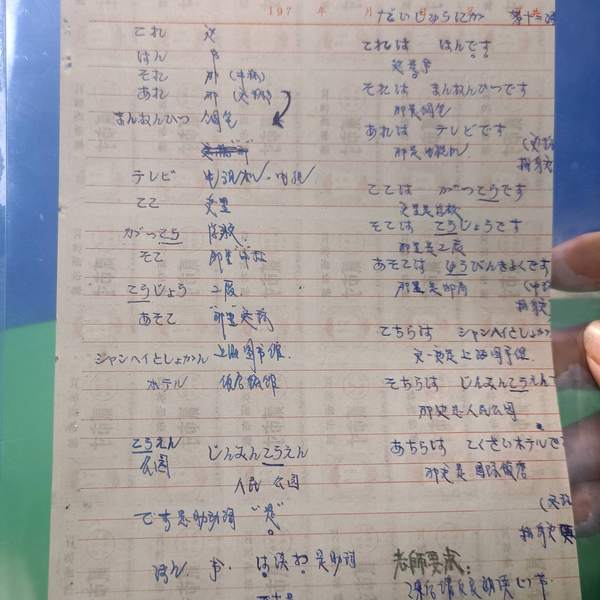 197 年 月
だいじゅうにか 第十二课
これ 这
ほん 书
それ 那 (中称)
あれ 那 (远称)
まんねんひつ 钢笔
テレビ 电视机・电视
ここ 这里
がっこう 学校
そこ 那里 中称
こうじょう 工厂
あそこ 那里 远称
シャンハイとしょかん 上海图书馆
ホテル 饭店 旅馆
こうえん じんみんこうえん
公园 人民 公园
です是助动词 "是"
ほん、书、は读わ、是助词
これは ほんです
这是书
それは まんねんひつです
那是钢笔
あれは テレビです
那是电视机
ここは がっこうです
这里是学校
そこは こうじょうです
那里是工厂
あそこは ゆうびんきょくです
那里是邮局
こちらは シャンハイとしょかん
这边是上海图书馆
そちらは じんみんこうえん
那边是人民公园
あちらは こくさいホテルで
那边是国际饭店
老師要求: